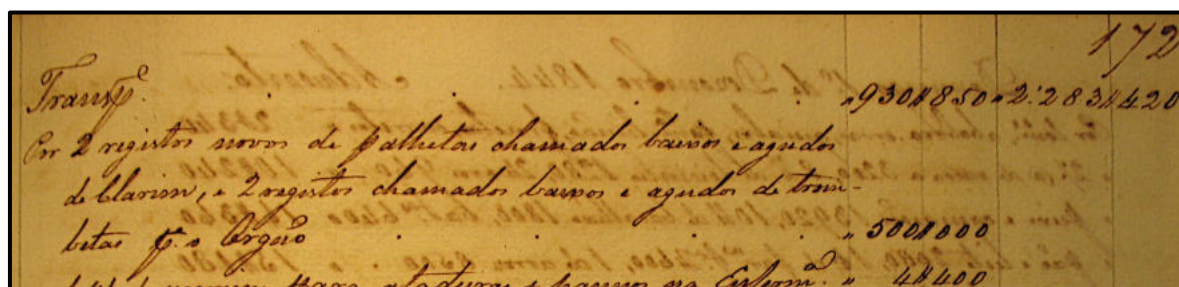 172
Transp.e . . . . . „ 930$850 „ 2:283$420
Por 2 registos novos de palhetas chamados baixos e agudos
de Clarim, e 2 registos chamados baixos e agudos de trom-
betas p.a o Orgão . . . . „ 50$000
para ataduras e pannos na Enferm.a „ 4$400